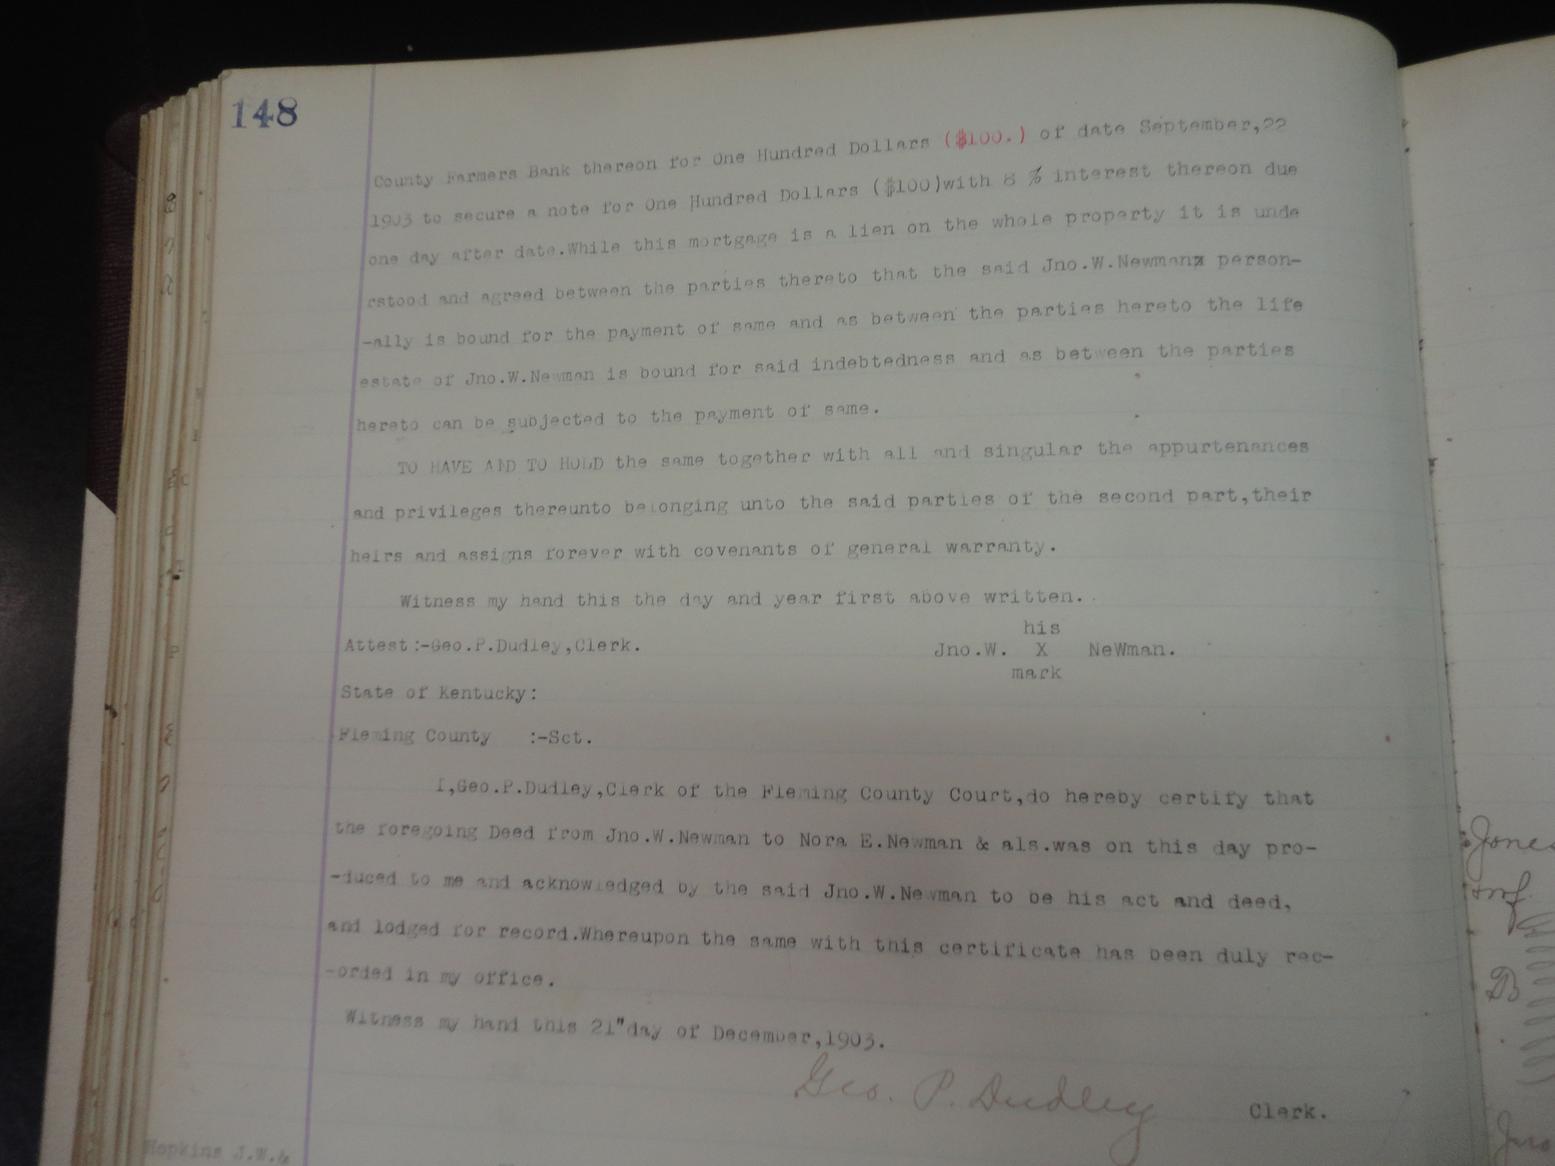 148
County Farmers Bank thereon for One Hundred Dollars ($100.) of date September,22
1903 to secure a note for One Hundred Dollars ($100)with 8 % interest thereon due
one day after date.While this mortgage is a lien on the whole property it is unde
rstood and agreed between the parties thereto that the said Jno.W.Newman person-
-ally is bound for the payment of same and as between the parties hereto the life
estate of Jno.W.Newman is bound for said indebtedness and as between the parties
hereto can be subjected to the payment of same.
TO HAVE AND TO HOLD the same together with all and singular the appurtenances
and privileges thereunto belonging unto the said parties of the second part,their
heirs and assigns forever with covenants of general warranty.
Witness my hand this the day and year first above written.
his
Attest:-Geo.P.Dudley,Clerk. Jno.W. X NeWman.
mark
State of Kentucky:
Fleming County :-Sct.
I,Geo.P.Dudley,Clerk of the Fleming County Court,do hereby certify that
the foregoing Deed from Jno.W.Newman to Nora E.Newman & als.was on this day pro-
-duced to me and acknowledged by the said Jno.W.Newman to be his act and deed,
and lodged for record.Whereupon the same with this certificate has been duly rec-
-orded in my office.
Witness my hand this 21"day of December,1903.
Geo. P. Dudley Clerk.
Hopkins J.W.&
Jones